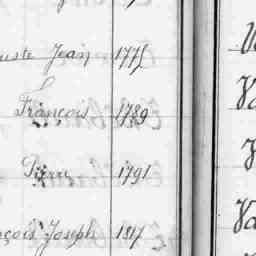 uste Jean 1775
François 1789
Pierre 1791
nçois Joseph 1817